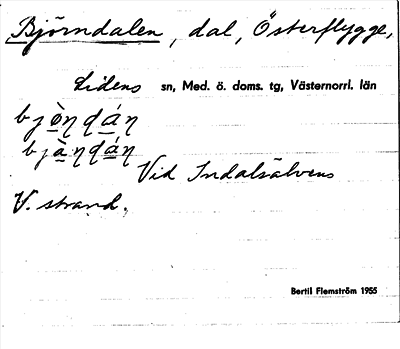 Björndalen, dal, Österflygge,
Lidens sn, Med. ö. doms. tg, Västernorrl. län
bjò̲ŋdá̲ŋ
bjà̲ŋdá̲ŋ
Vid Indalsälvens
V. strand.
Bertil Flemström 1955